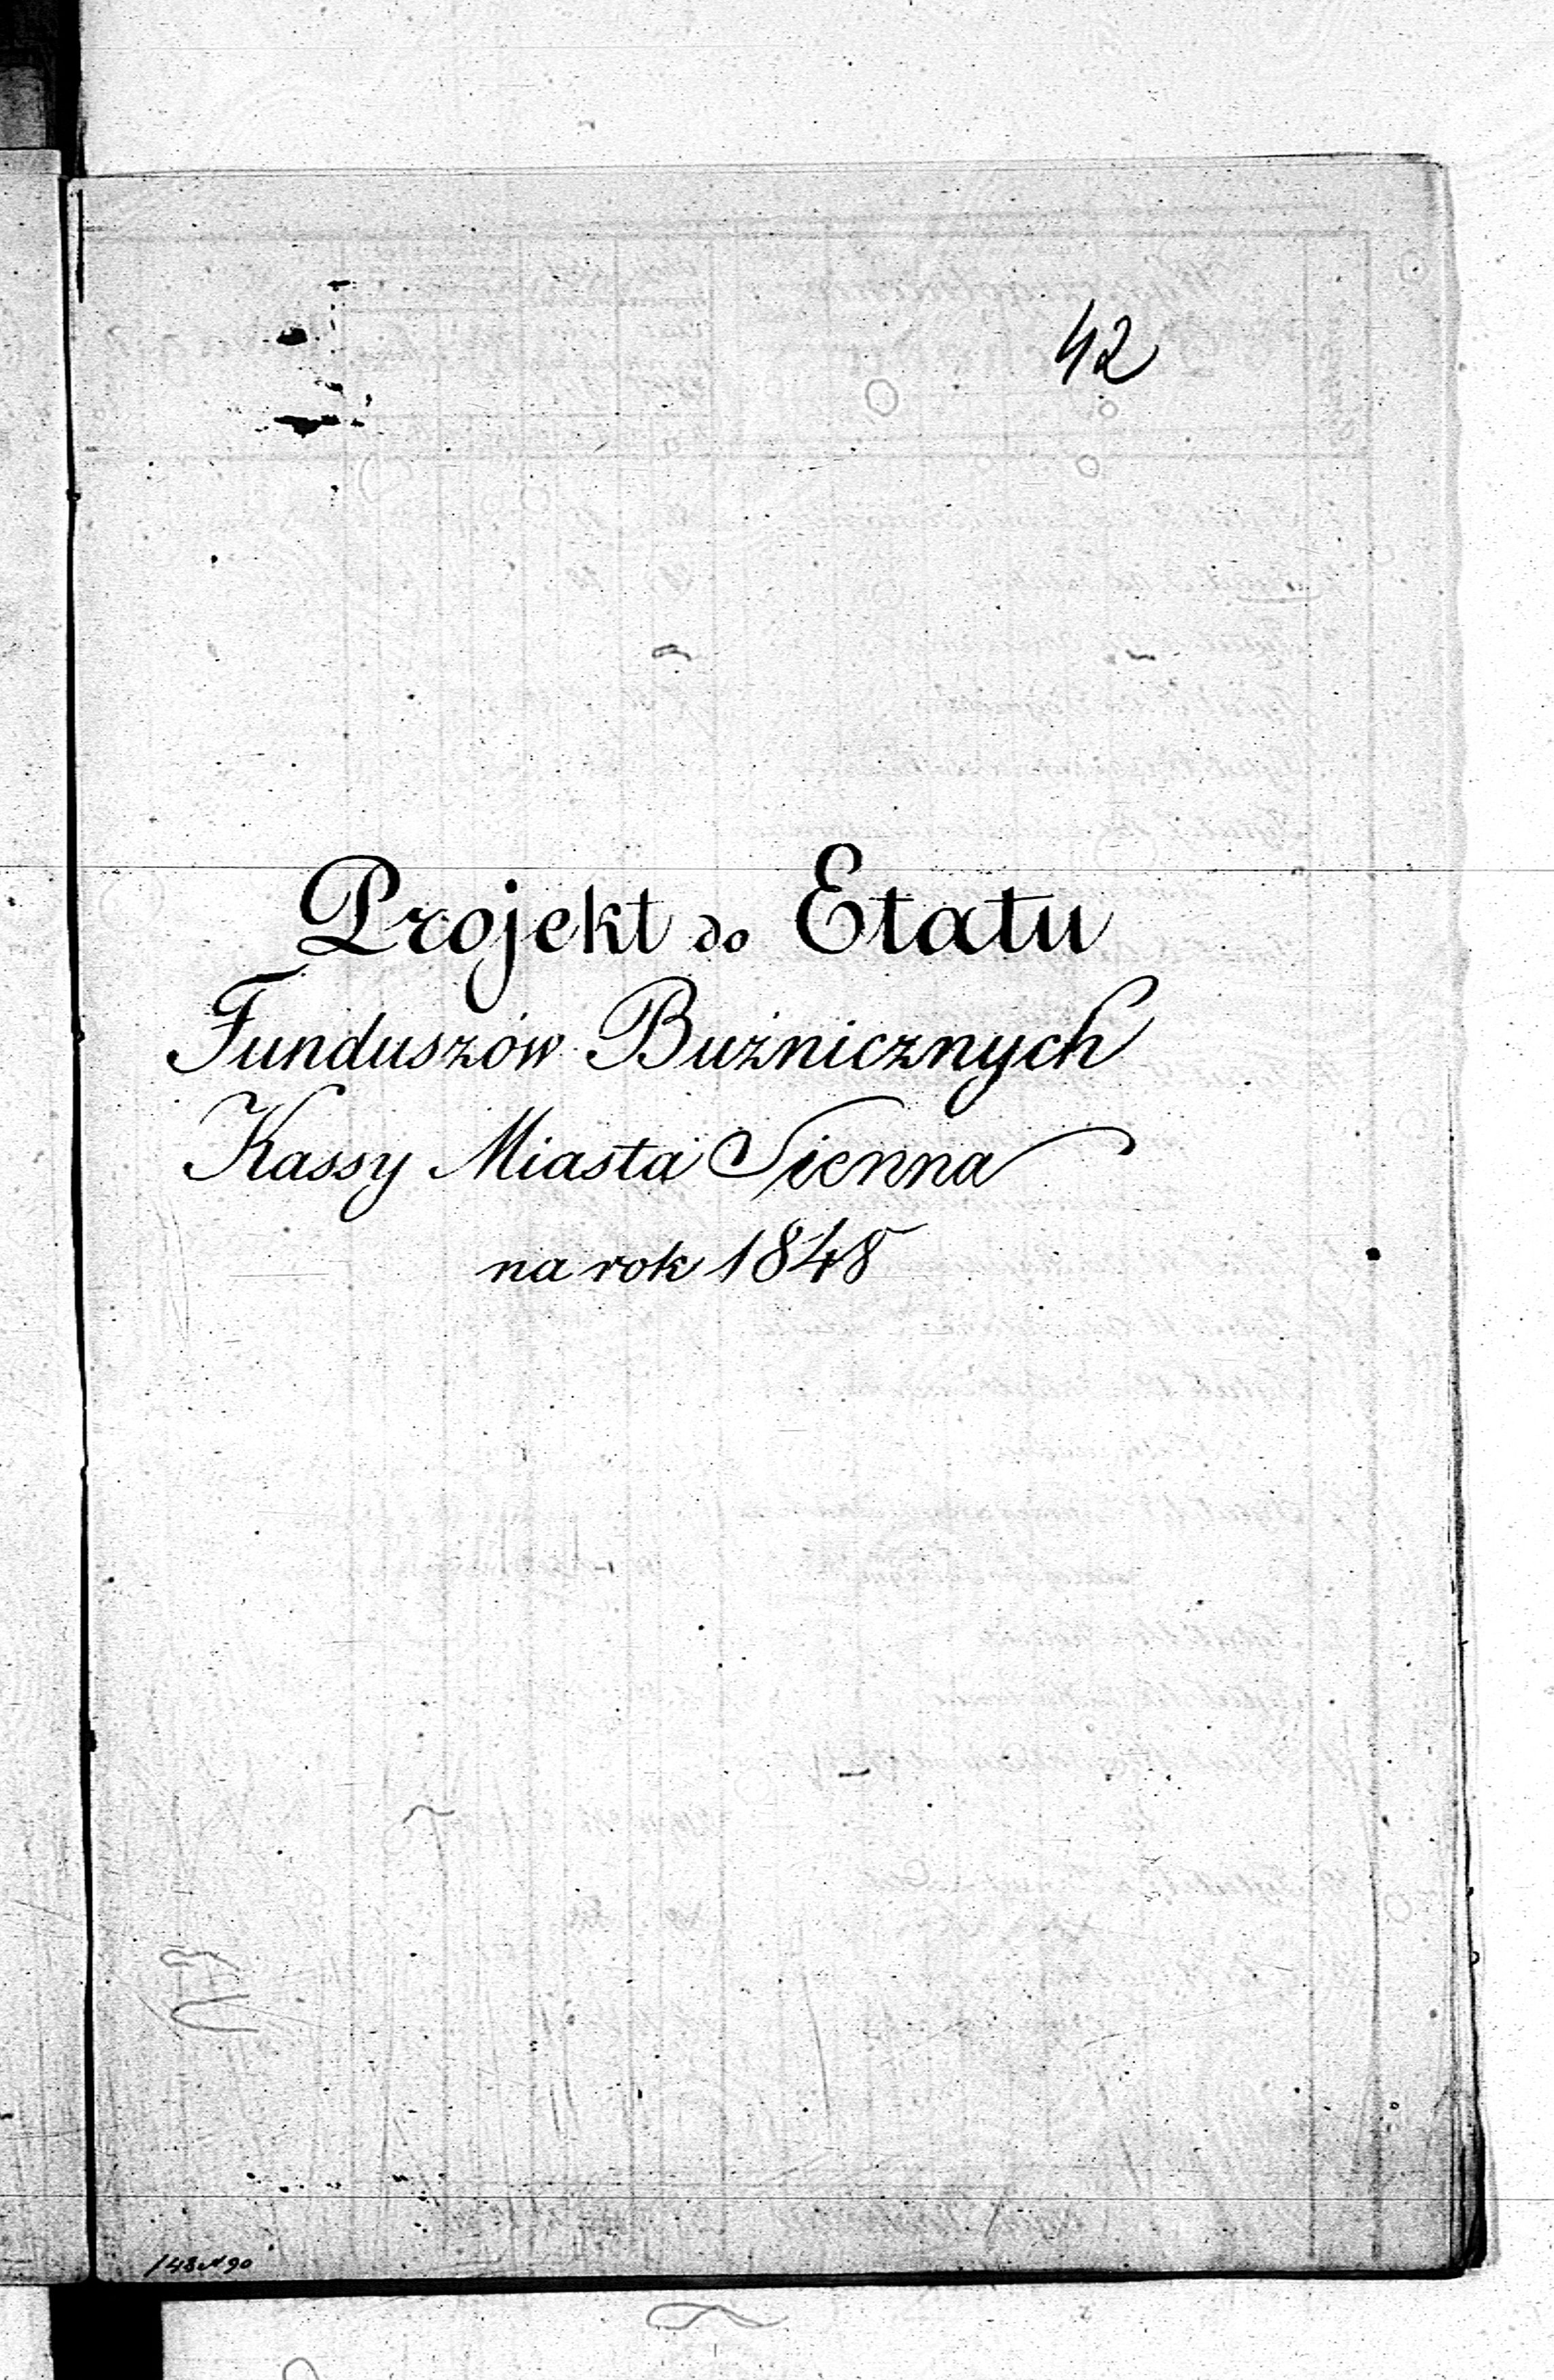 42
Projekt do Etatu
Funduszów Bużnicznych
Kassy Miasta Sienna
na rok 1848